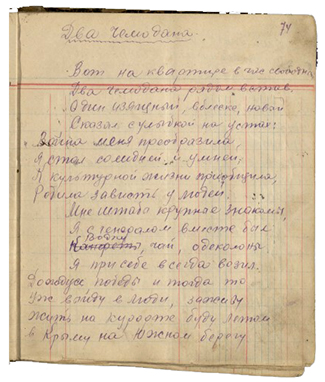 74
Два чемодана.
Вот на квартире в час свободный
Два чемодана рядом встав.
Один изящный, блеском, новой
Сказал с улыбкой на устах:
Война меня преобразила,
Я стал солидней и умней,
К культурной жизни приобщила,
Робила зависть у людей.
Мне штаба крупные знакомы,
Я с генералом вместе был
Водку, чай, одеколоны
Я при себе всегда возил.
Дождусь победы и тогда то
Уж войду в люди, заживу
Жить на курорте буду летом
в Крыму на Южном берегу